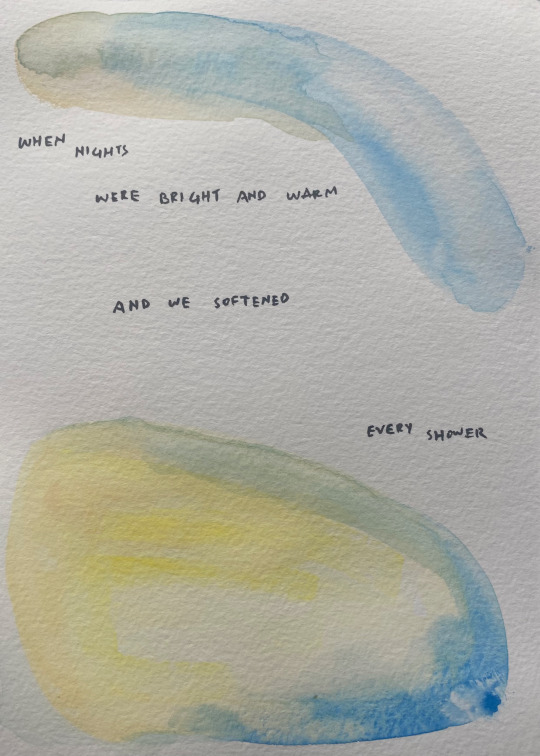 WHEN NIGHTS
WERE BRIGHT AND WARM
AND WE SOFTENED
EVERY SHOWER